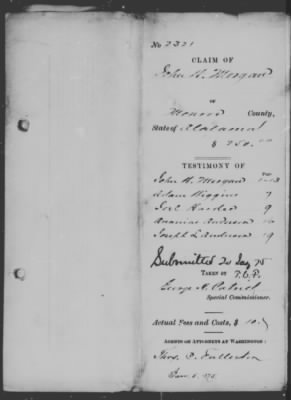 No 2321
CLAIM OF
John H. Morgan
OF
Monroe County,
State of Alabama
$ 750.00
TESTIMONY OF
John H. Morgan
Adam Wiggins 7
Joel Hardee 9
Ananias Anderson
Joseph L Anderson 19
Submitted
TAKEN BY
George H. Patrick
Special Commissioner.
Actual Fees and Costs, $ 10.
AGENTS OR ATTORNEYS AT WASHINGTON:
Thos. J. Fullerton